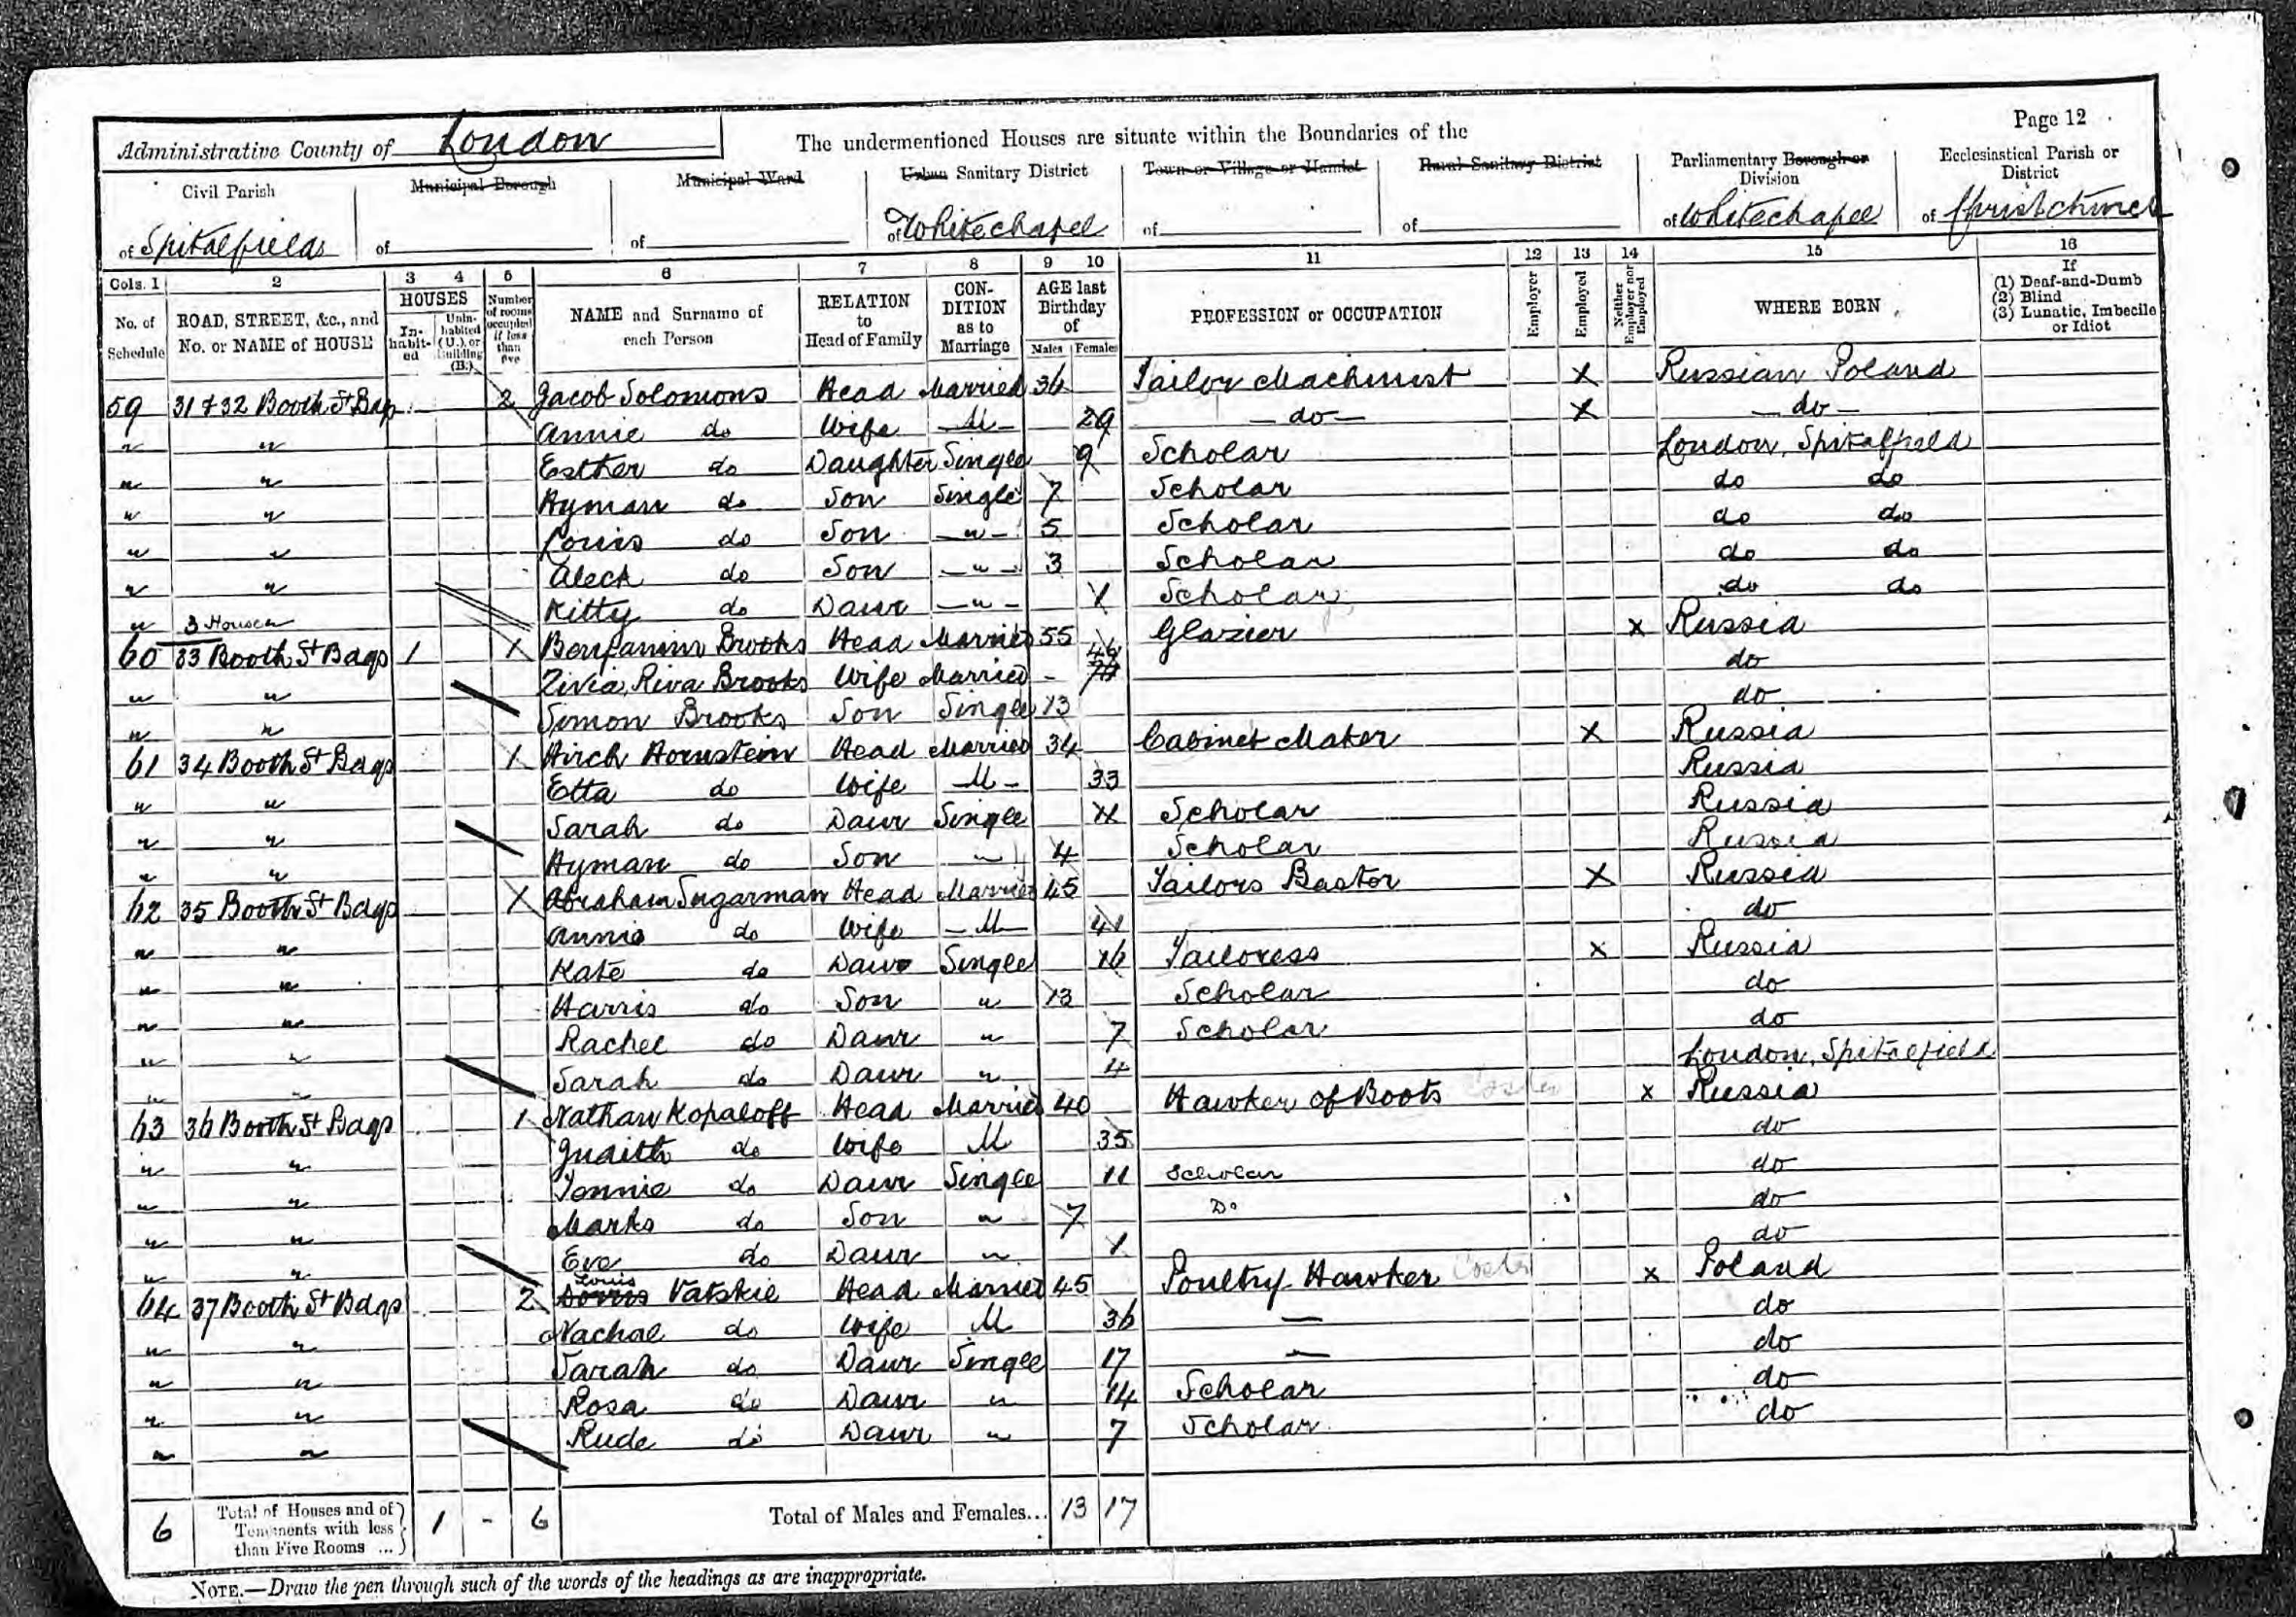 Page 12
Administrative County of London
The undermentioned Houses are situate within the Boundaries of the
Civil Parish
of Spitalfields
Municipal Borough
of
Municipal Ward
of
Urban Sanitary District
of Whitechapel
Town or Village or Hamlet
of
Rural Sanitary District
of
Parliamentary Borough or Division
of Whitechapel
Ecclesiastical Parish or District
of Christchurch
Cols. 1 2 3 4 5 6 7 8 9 10 11 12 13 14 15 16
No. of Schedule
ROAD, STREET, &c., and No. or NAME of HOUSE
HOUSES
In-habit-ed
Unin-habited (U.), or Building (B.)
Number of rooms occupied if less than five
NAME and Surname of each Person
RELATION to Head of Family
CON-DITION as to Marriage
AGE last Birthday of
Males Females
PROFESSION or OCCUPATION
Employer
Employed
Neither Employer nor Employed
WHERE BORN
If
(1) Deaf-and-Dumb
(2) Blind
(3) Lunatic, Imbecile or Idiot
59 31 & 32 Booth St Bdgs 2 Jacob Solomons Head Married 36 Tailor Machinist X Russian Poland
" " Annie do Wife M 29 do X do
" " Esther do Daughter Single 9 Scholar London, Spitalfield
" " Hyman do Son Single 7 Scholar do do
" " Louis do Son " 5 Scholar do do
" " Aleck do Son " 3 Scholar do do
" 3 Houses Kitty do Daur " 1 Scholar do do
60 33 Booth St Bdgs 1 1 Benjamin Brooks Head Married 55 Glazier X Russia
" " Zivia, Riva Brooks Wife Married - do
" " Simon Brooks Son Single 13 do
61 34 Booth St Bdgs 1 Hirch Hornstein Head Married 34 Cabinet Maker X Russia
" " Etta do Wife M 33 Russia
" " Sarah do Daur Single 11 Scholar Russia
" " Hyman do Son " 4 Scholar Russia
62 35 Booth St Bdgs 1 Abraham Sugarman Head Married 45 Tailors Baster X Russia
" " Annie do Wife M 41 do
" " Kate do Daur Single 16 Tailoress X Russia
" " Harris do Son " 13 Scholar do
" " Rachel do Daur " 7 Scholar do
" " Sarah do Daur " 4 London, Spitalfield
63 36 Booth St Bdgs 1 Nathan Kopaloff Head Married 40 Hawker of Boots Coster X Russia
" " Judith do Wife M 35 do
" " Yennie do Daur Single 11 Scholar do
" " Marks do Son " 7 Do do
" " Eva do Daur " 1 do
64 37 Booth St Bdgs 2 Louis Vatskie Head Married 45 Poultry Hawker Coster X Poland
" " Nachae do Wife M 36 — do
" " Sarah do Daur Single 17 — do
" " Rosa do Daur " 14 Scholar do
" " Rude do Daur " 7 Scholar do
6 Total of Houses and of Tenements with less than Five Rooms ... 1 - 6 Total of Males and Females... 13 17
NOTE.—Draw the pen through such of the words of the headings as are inappropriate.